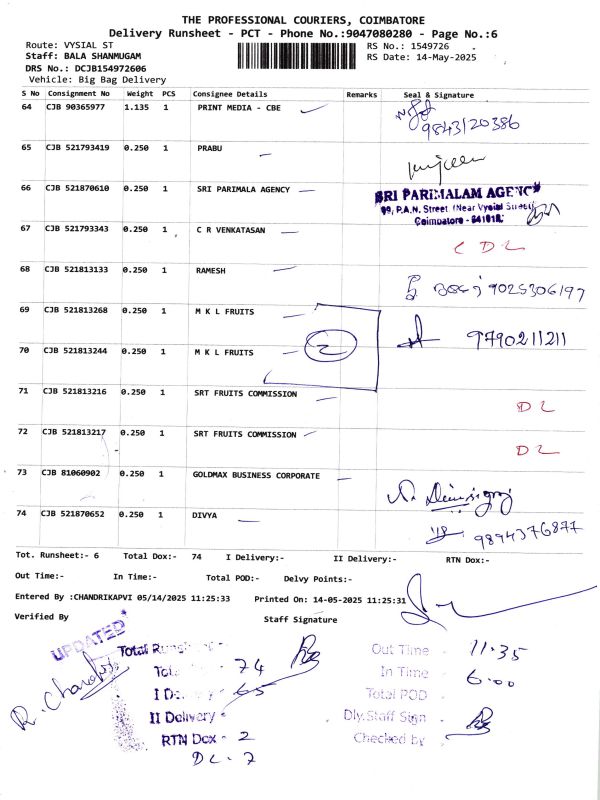 THE PROFESSIONAL COURIERS, COIMBATORE
Delivery Runsheet - PCT - Phone No.:9047080280 - Page No.:6
Route: VYSIAL ST RS No.: 1549726
Staff: BALA SHANMUGAM RS Date: 14-May-2025
DRS No.: DCJB154972606
Vehicle: Big Bag Delivery
S No Consignment No Weight PCS Consignee Details Remarks Seal & Signature
64 CJB 90365977 1.135 1 PRINT MEDIA - CBE
9843120386
65 CJB 521793419 0.250 1 PRABU
66 CJB 521870610 0.250 1 SRI PARIMALA AGENCY
SRI PARIMALAM AGENCY
99, P.A.N. Street (Near Vysial Street)
Coimbatore - 641018.
67 CJB 521793343 0.250 1 C R VENKATASAN
C D L
68 CJB 521813133 0.250 1 RAMESH
9025306197
69 CJB 521813268 0.250 1 M K L FRUITS
2 9790211211
70 CJB 521813244 0.250 1 M K L FRUITS
71 CJB 521813216 0.250 1 SRT FRUITS COMMISSION
D L
72 CJB 521813217 0.250 1 SRT FRUITS COMMISSION
D L
73 CJB 81060902 0.250 1 GOLDMAX BUSINESS CORPORATE
74 CJB 521870652 0.250 1 DIVYA
9894376877
Tot. Runsheet:- 6 Total Dox:- 74 I Delivery:- II Delivery:- RTN Dox:-
Out Time:- In Time:- Total POD:- Delvy Points:-
Entered By :CHANDRIKAPVI 05/14/2025 11:25:33 Printed On: 14-05-2025 11:25:31
Verified By Staff Signature
UPDATED
Total
74
I 65
II Delivery -
RTN Dox - 2
DL - 7
R. Chandri
Out Time - 11:35
In Time - 6:00
Total POD -
Dly.Staff Sign -
Checked by -